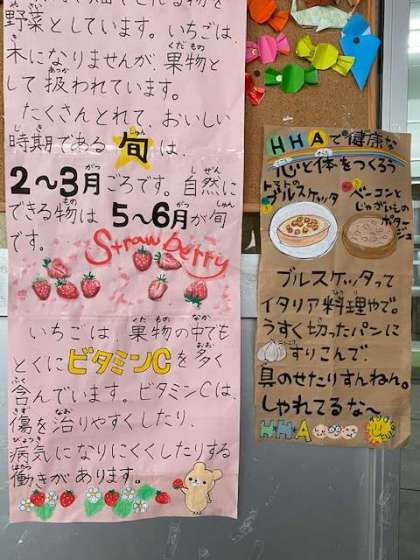 野菜としています。いちごは、
木になりませんが、果物と
して扱われています。
たくさんとれて、おいしい
時期である旬は、
2〜3月ごろです。自然に
できる物は5〜6月が旬
です。
Strawberry
いちごは果物の中でも
とくにビタミンCを多く
含んでいます。ビタミンCは、
傷を治りやすくしたり、
病気になりにくくしたりする
働きがあります。
HHAで健康な
心と体をつくろう
トマトの
ブルスケッタ
ベーコンと
じゃがいもの
ポタージュ
ブルスケッタって
イタリア料理やで。
うすく切ったパンに
すりこんで
具のせたりすんねん。
しゃれてるな〜
HHA